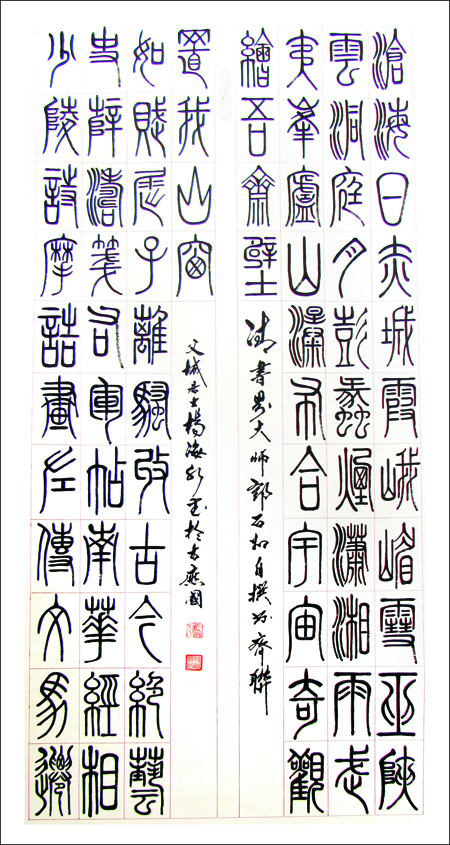 滄海日赤城霞峨嵋雪巫陝
雲洞庭月彭蠡煙瀟湘雨武
夷峯廬山瀑布合宇宙奇觀
繪吾齋壁
清書界大師鄧石如自撰书齋聯
少陵詩摩詰畫左傳文馬遷
史薛濤箋右軍帖南華經相
如賦屈子離騷收古今絕藝
置我山窗
文城居士楊海 於古應國